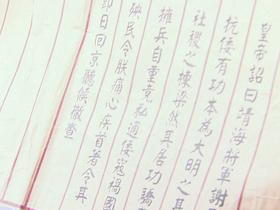 皇帝詔曰靖海將軍謝
抗倭有功本為大明之
社稷之棟梁然其居功驕
擁兵自重竟私通倭寇禍國
殃民令朕痛心疾首者令其
即日回京聽候徹查